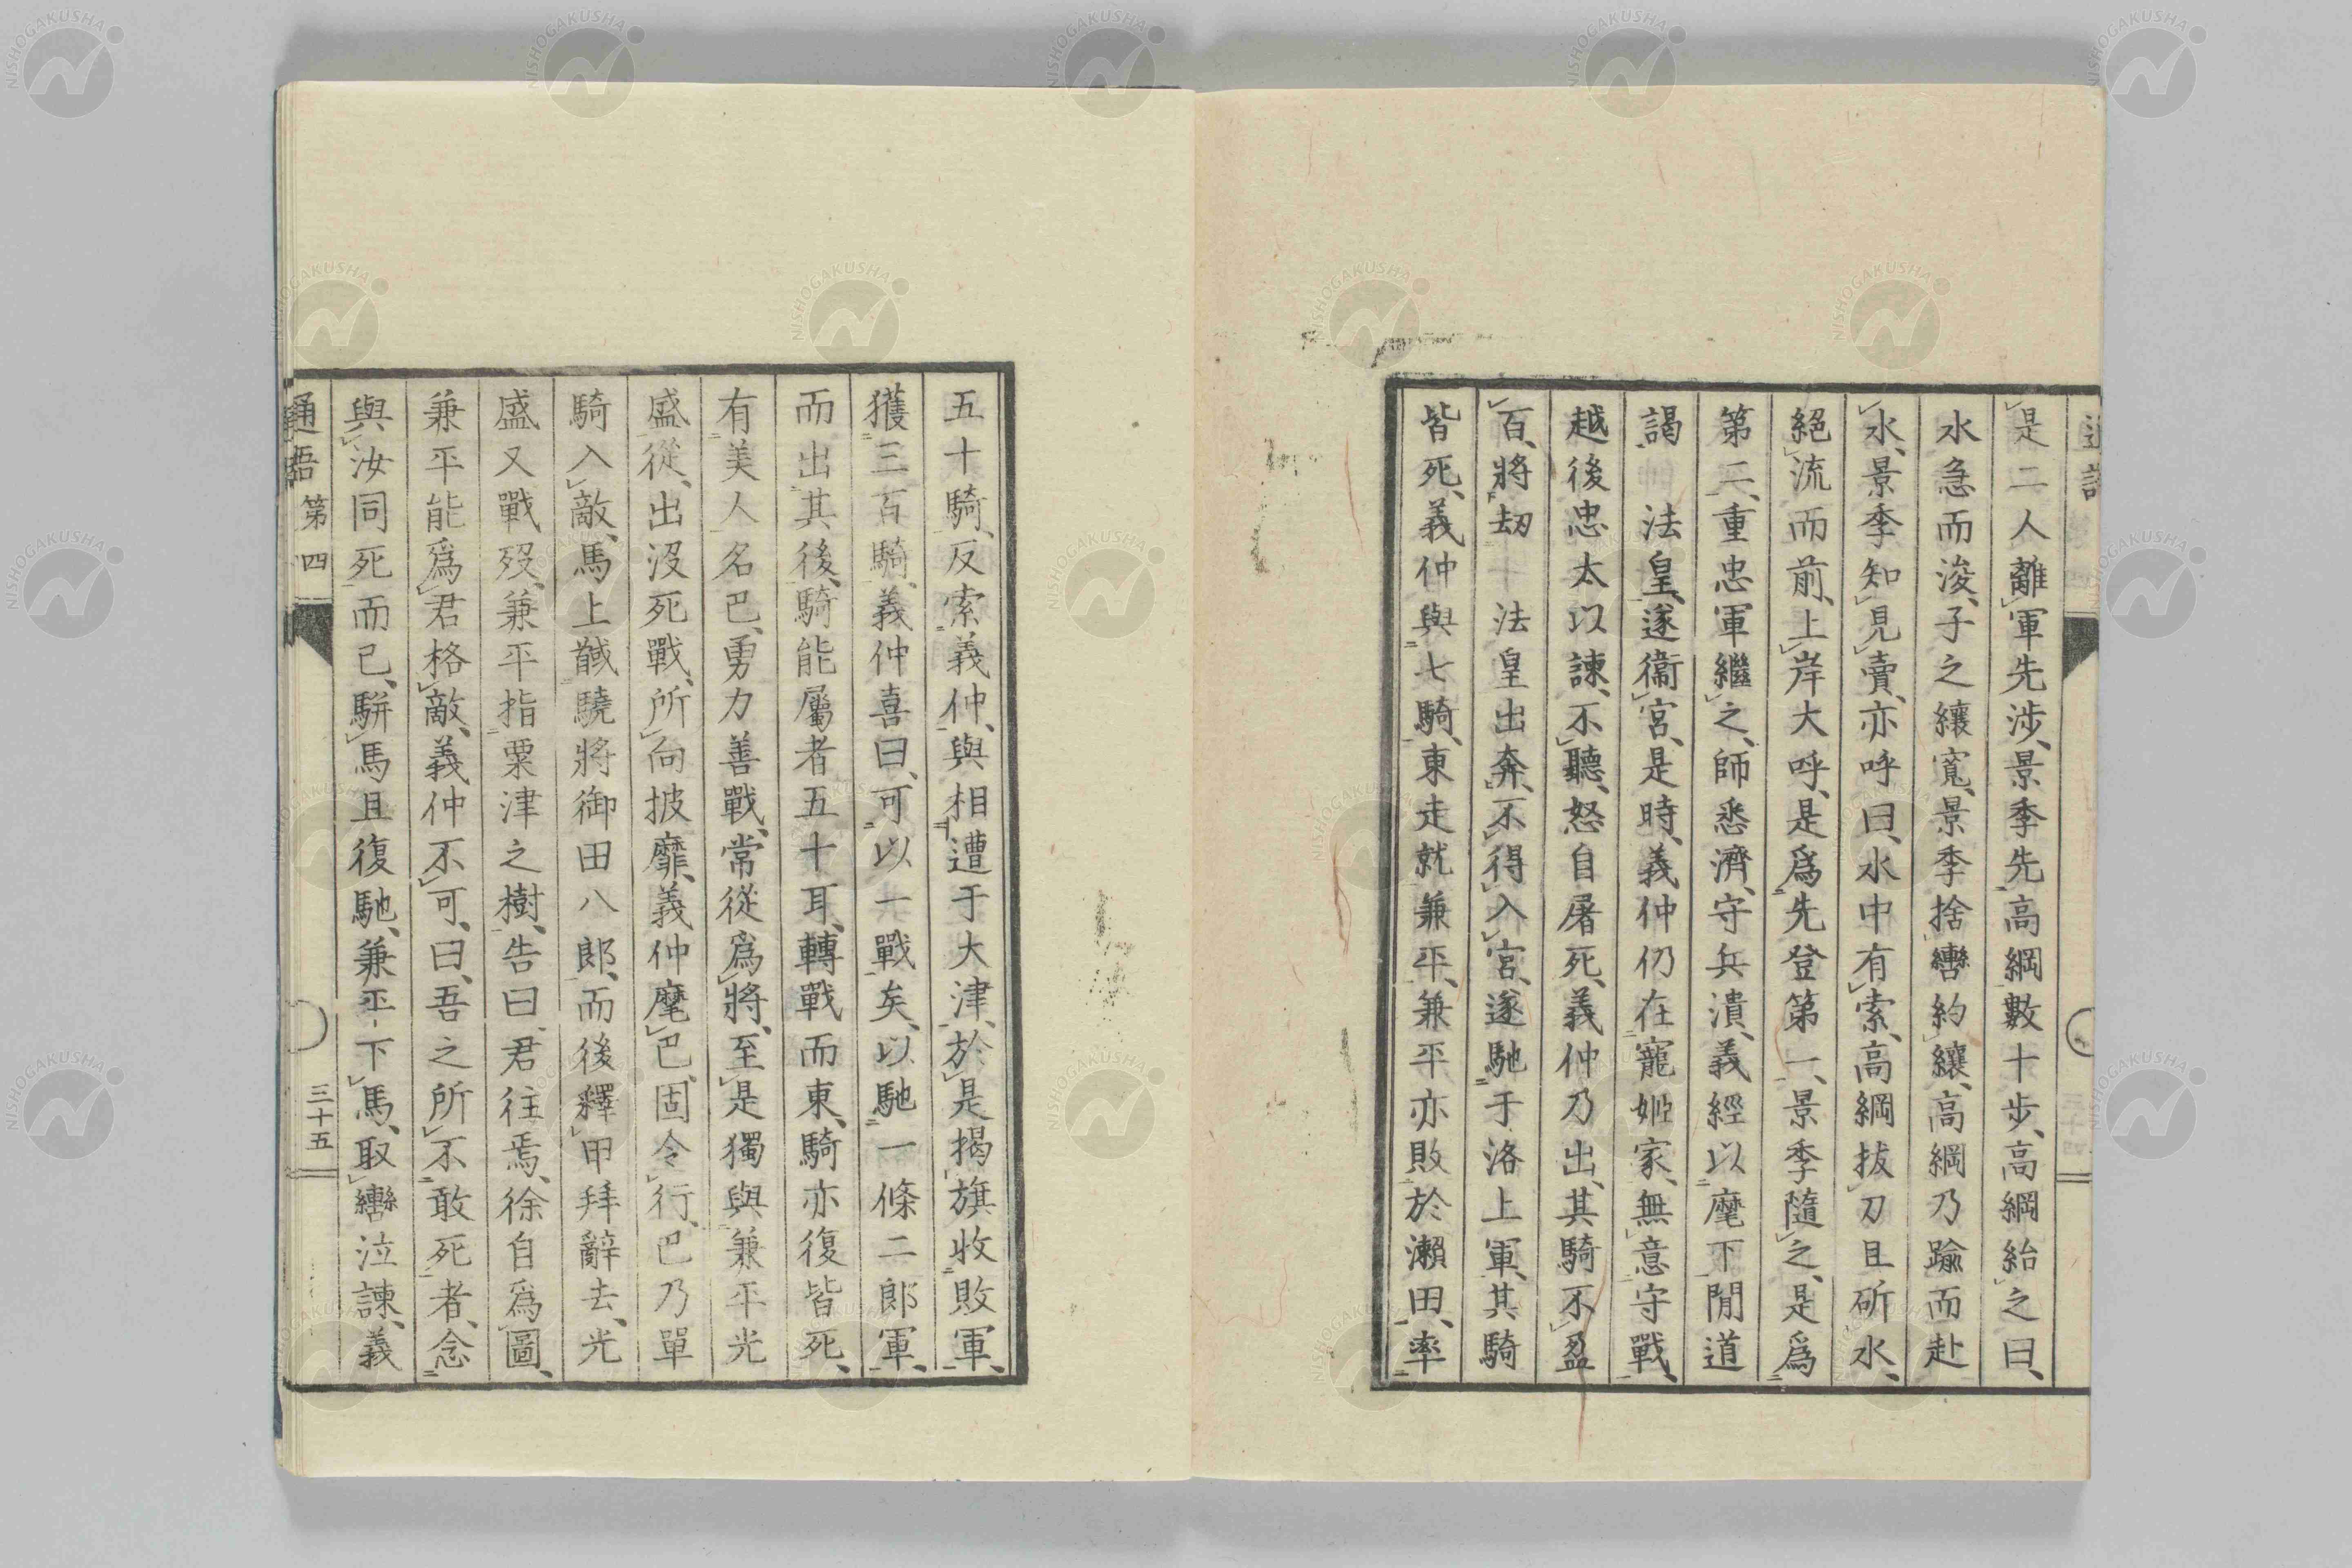 是二人離軍先渉、景季先高綱數十歩、高綱紿之曰、
水急而浚、子之纕寛、景季捨轡約纕、高綱乃踰而赴
水、景季知見賣、亦呼曰、水中有索、高綱拔刀且斫水、
絕流而前、上岸大呼、是爲先登第一、景季隨之、是爲
第二、重忠軍繼之、師悉濟、守兵潰、義經以麾下閒道
謁　法皇、遂衞宮、是時、義仲仍在寵姬家、無意守戰、
越後忠太以諫、不聽、怒自屠死、義仲乃出、其騎不盈
百、將劫　法皇出奔、不得入宮、遂馳于洛上軍、其騎
皆死、義仲與七騎、東走就兼平、兼平亦敗於瀬田、率
五十騎、反索義仲、與相遭于大津、於是揭旗收敗軍、
獲三百騎、義仲喜曰、可以一戰矣、以馳一條二郎軍、
而出其後、騎能屬者五十耳、轉戰而東、騎亦復皆死、
有美人名巴、勇力善戰、常從爲將、至是獨與兼平光
盛從、出沒死戰、所向披靡、義仲麾巴、固令行、巴乃單
騎入敵、馬上馘驍將御田八郎、而後釋甲拜辭去、光
盛又戰歿、兼平指粟津之樹、告曰、君往焉、徐自爲圖、
兼平能爲君格敵、義仲不可、曰、吾之所不敢死者、念
與汝同死而已、駢馬且復馳、兼平下馬、取轡泣諫、義
通語 第四 三十五
NISHOGAKUSHA